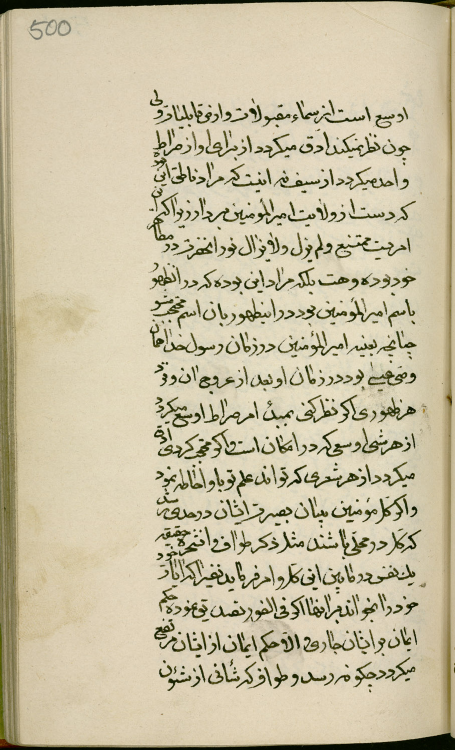 500
اوسع است از سماء مقبولات و ارض قابلیات ولی
چون نظر نمیکند ادق میگردد از برای او از صراط
واحد میگردد از سیف نه اینست که مراد ناطق این بوده
که دست از ولایت امیر المؤمنین بردارد زیرا که این
امریست ممتنع و لم یزل و لا یزال نور آنحضرت در مطالع
خود بوده و هست بلکه مراد این بوده که در آن ظهور
باسم امیر المؤمنین بود در این ظهور بان اسم محتجب مشو
چنانچه بعینه امیر المؤمنین در زمان رسول خدا همان
وصی عیسی بود در زمان او بعد از عروج ان و در
هر ظهوری اگر نظر کنی بمبدء امر صراط اوسع میگردد
از هر شیء اوسعی که در امکان است و اگر محتجب گردی ادق
میگردد از هر شعری که تواند علم تو باو احاطه نمود
و اگر کل مؤمنین به بیان بصیرت ایشان در حدی رسد
که کل در محلی باشند مثل ذکر طواف و شجره حقیقت
یک نفس در مابین این کل و امر فرماید بغیر آنکه آیات
خود را بخواند مرا انها اگر فی الفور تصدیق نموده حکم
ایمان بر ایشان جاری و الا حکم ایمان از ایشان مرتفع
میگردد چگونه رسد و طواف که شأنی از شئون